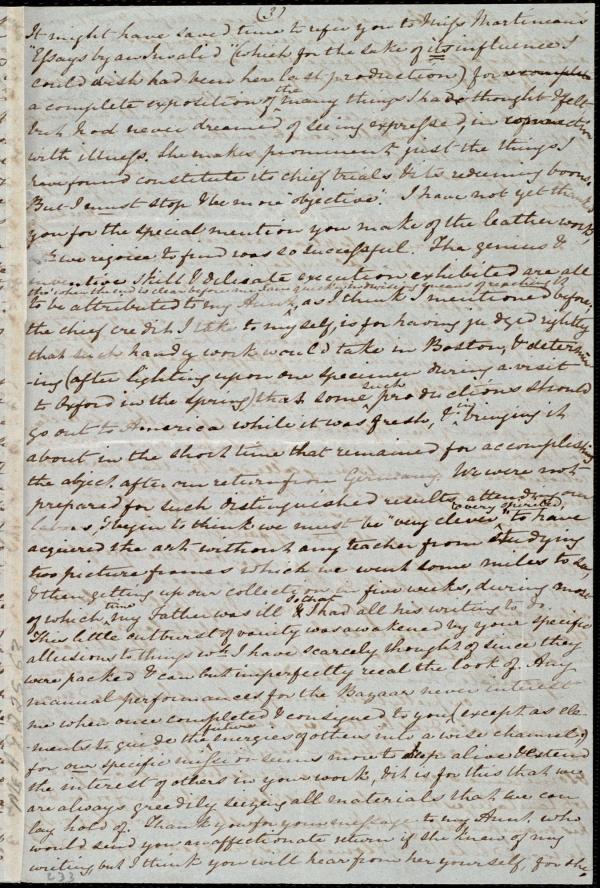 (3)
It might have saved time to refer you to Miss Martineau's
"Essays by an Invalid" (which for the sake of its influence I
could wish had been her last production) for
a complete exposition of the many things I had thought & felt
but had never dreamed of seeing expressed, in connection
with illness. She makes prominent just the things I
have found constitute its chief trials & its redeeming boons.
But I must stop & be more "objective". I have not yet thanked
you for the special mention you make of the leather work,
we rejoice to find was so successful. The genius &
inventive skill & delicate execution exhibited are all
to be attributed to my Aunt, as I think I mentioned before,
the chief credit I take to myself, is for having judged rightly
that such handy work would take in Boston, & determin-
ing (after lighting upon one specimen during a visit
to Oxford in the spring) that some such productions should
go out to America while it was fresh, & in bringing it
about in the short time that remained for accomplishing
the object, after our return from Germany. We were not
prepared for such distinguished results attending our
labors, & begin to think we must be "very clever" & very spirited, to have
acquired the art without any teacher from studying
two picture frames which we went some miles to see,
& then getting up our collection in five weeks, during most
of which time my Father was ill & that I had all his writing to do.
This little outburst of vanity was awakened by your specific
allusions to things wh I have scarcely thought of since they
were packed & can but imperfectly recal the look of. Any
manual performances for the Bazaar never interest
me when once completed & consigned to you (except as ele-
ments to guide the future energies of others into a wise channel,)
for our specific mission seems more to keep alive & extend
the interest of others in your work, & it is for this that we
are always greedily seizing all materials that we can
lay hold of. Thank you for your message to my Aunt, who
would send you an affectionate return if she knew of my
writing, but I think you will hear from her yourself, for she
233